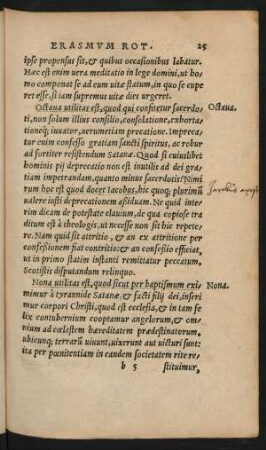 ERASMVM ROT. 25
ipse propensus sit, & quibus occasionibus labatur.
Hæc est enim uera meditatio in lege domini, ut ho
mo componat se ad eum uitæ statum, in quo se cupe
ret esse, si iam supremus uitæ dies urgeret.
Octaua utilitas est, quod qui confitetur sacerdo- Octaua.
ti, non solum illius consilio, consolatione, exhorta-
tioneq; iuuatur, uerumetiam precatione. Impreca-
tur enim confesso gratiam sancti spiritus, ac robur
ad fortiter resistendum Satanæ. Quod si cuiuslibet
hominis pij deprecatio non est inutilis ad dei gra-
tiam impetrandam, quanto minus sacerdotis? Nimi
rum hoc est quod docet Iacobus, hic quoq; plurimũ
ualere iusti deprecationem assiduam. Ne quid inte
rim dicam de potestate clauium, de qua copiose tra
ditum est à theologis, ut necesse non sit hic repete-
re. Nam quid sit attritio, & an ex attritione per
confessionem fiat contritio & an confessio efficiat,
ut in primo statim instanti remittatur peccatum,
Scotistis disputandum relinquo.
Nona utilitas est, quod sicut per baptismum exi Nona.
mimur à tyrannide Satanæ, & facti filij dei, inseri
mur corpori Christi, quod est ecclesia, & in tam fe
lix contubernium cooptamur angelorum, & om-
nium ad cœlestem hæreditatem prædestinatorum,
ubicunq; terrarũ uiuunt, uixerunt aut uicturi sunt:
ita per pœnitentiam in eandem societatem rite re-
b 5 stituimur,